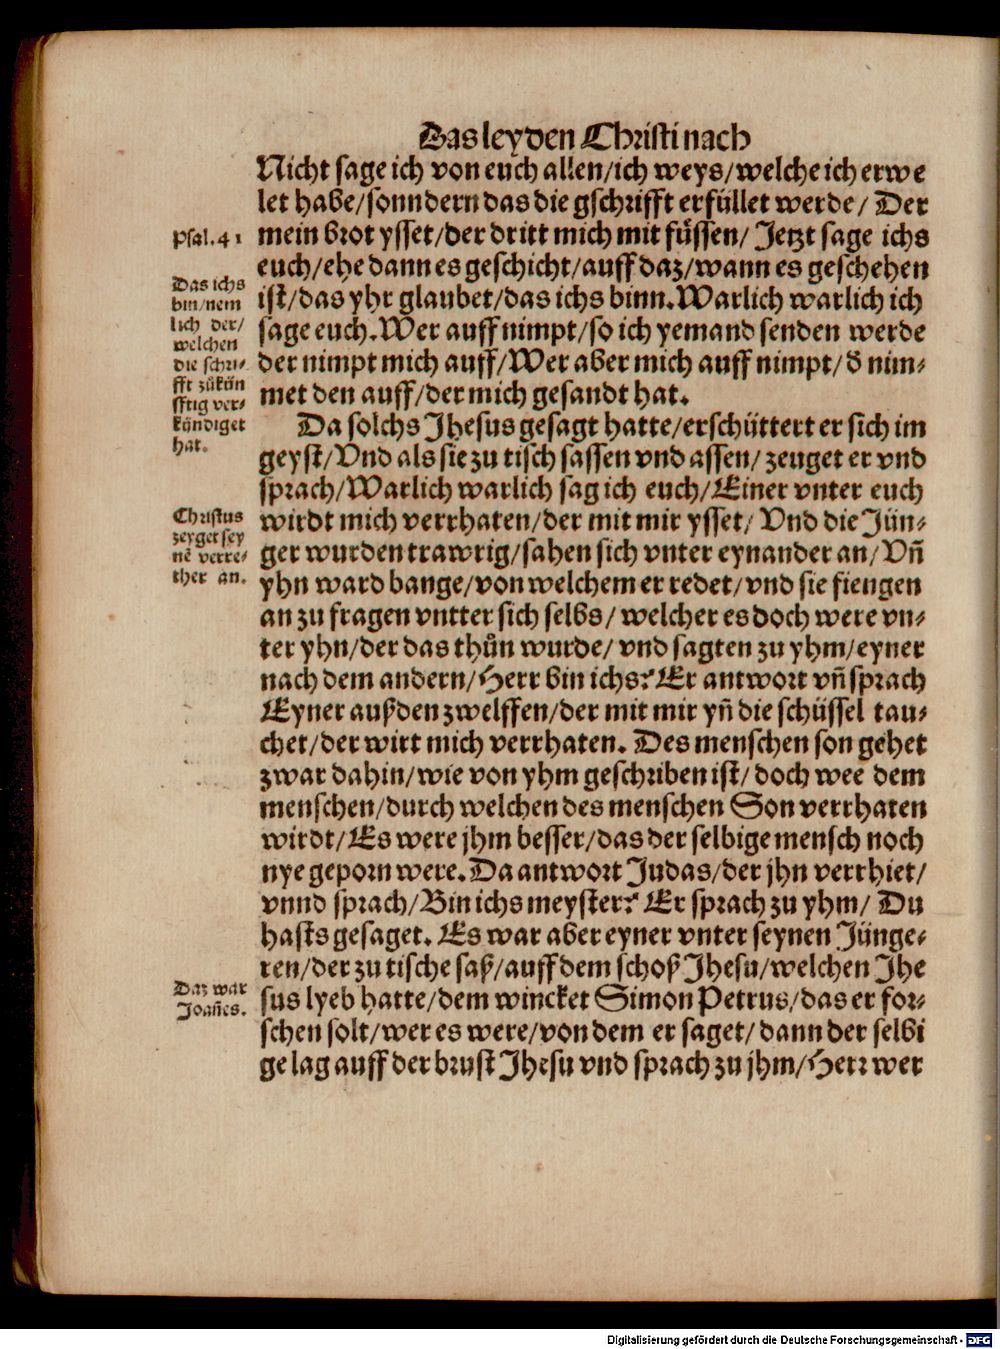 Das leyden Christi nach
Nicht sage ich von euch allen/ich weys/welche ich erwe
let habe/sonndern das die gschrifft erfüllet werde/ Der
mein brot ysset/der dritt mich mit füssen/ Jetzt sage ichs
euch/ehe dann es geschicht/auff daz/wann es geschehen
ist/das yhr glaubet/das ichs binn.Warlich warlich ich
sage euch.Wer auff nimpt/so ich yemand senden werde
der nimpt mich auff/Wer aber mich auff nimpt/d nim-
met den auff/der mich gesandt hat.
Da solchs Jhesus gesagt hatte/erschüttert er sich im
geyst/Vnd als sie zu tisch sassen vnd assen/ zeuget er vnd
sprach/Warlich warlich sag ich euch/Einer vnter euch
wirdt mich verrhaten/der mit mir ysset/ Vnd die Jün-
ger wurden trawrig/sahen sich vnter eynander an/Vñ
yhn ward bange/von welchem er redet/vnd sie fiengen
an zu fragen vntter sich selbs/ welcher es doch were vn-
ter yhn/der das thůn wurde/ vnd sagten zu yhm/eyner
nach dem andern/Herr bin ichs? Er antwort vñ sprach
Eyner auß den zwelffen/der mit mir yñ die schüssel tau-
chet/der wirt mich verrhaten. Des menschen son gehet
zwar dahin/wie von yhm geschriben ist/ doch wee dem
menschen/durch welchen des menschen Son verrhaten
wirdt/Es were jhm besser/das der selbige mensch noch
nye geporn were.Da antwort Judas/der jhn verrhiet/
vnnd sprach/Bin ichs meyster? Er sprach zu yhm/ Du
hasts gesaget. Es war aber eyner vnter seynen Jünge-
ren/der zu tische saß/auff dem schoß Jhesu/welchen Jhe
sus lyeb hatte/dem wincket Simon Petrus/das er for-
schen solt/wer es were/von dem er saget/dann der selbi
ge lag auff der brust Jhesu vnd sprach zu jhm/Herr wer
Psal.41
Das ichs
bin/nem
lich der/
welchen
die schri-
fft zükün
fftig ver-
kündiget
hat.
Christus
zeyget sey
nẽ verre-
ther an.
Daz war
Joañes.
Digitalisierung gefördert durch die Deutsche Forschungsgemeinschaft - DFG